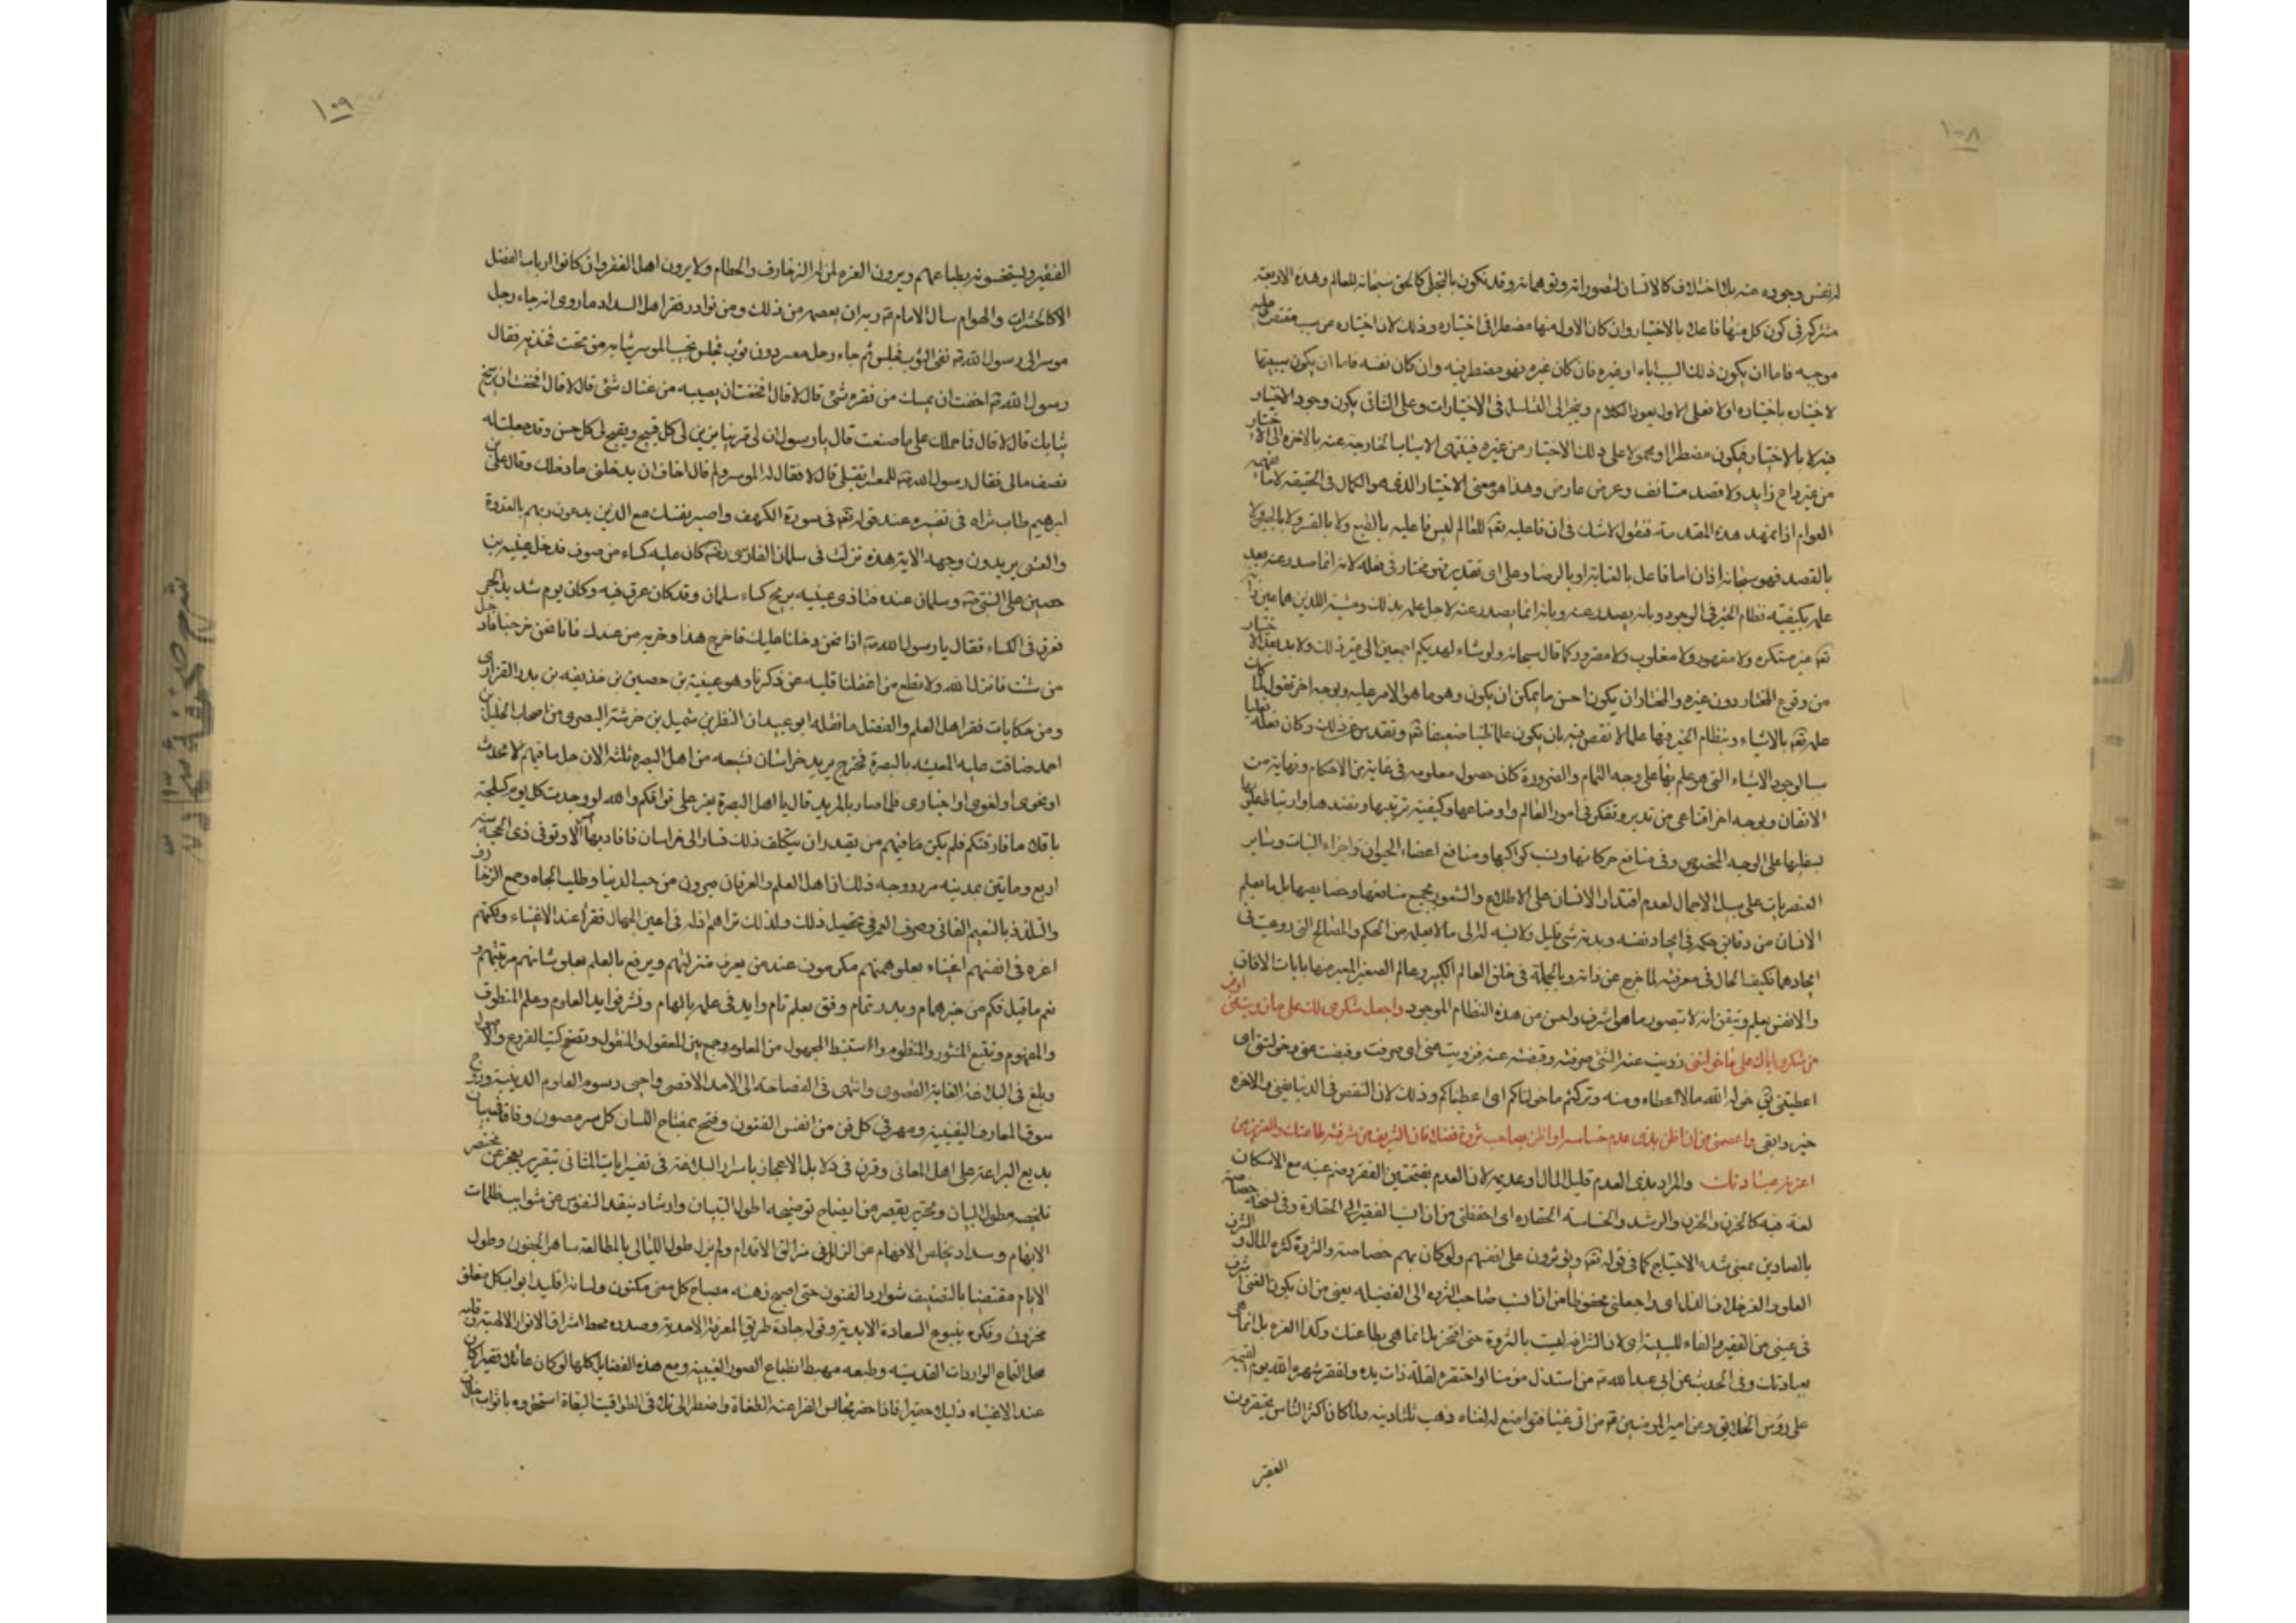 ١٠٨
له نفس وجوده عنه بلا اختلاف كالانسان لتصوراته وتوهماته وقد تكون بالتجلى كالحق سبحانه للعالم وهذه الاربعة
مشتركة فى كون كل منها فاعلا بالاختيار وان كان الاول منها مضطرا فى اختياره وذلك لان اختياره من سبب مقتض عليه
موجبه فاما ان يكون ذلك السبب اياه او غيره فان كان غيره فهو مضطر فيه وان كان نفسه فاما ان يكون سببيتها
لاختياره باختياره او لا فعلى الاول يعود الكلام وينجر الى التسلسل فى الاختيارات وعلى الثانى يكون وجود الاختيار
فيه لا بالاختيار فيكون مضطرا او محمولا على ذلك الاختيار من غيره فينتهى الاسباب الخارجة عنه بالاخره الى الاختيار
من غير داع زايد ولا قصد مستانف وغرض عارض وهذا هو معنى الاختيار الذى هو الكمال فى الحقيقة لا ما يفهمه
العوام اذا تمهد هذه المقدمة فنقول لاشك فى ان فاعليه تعه للعالم ليس فاعليه بالطبع ولا بالقسر ولا بالجبر ولا
بالقصد فهو سبحانه اذان اما فاعل بالعناية او بالرضا وعلى اى تقدير فهو مختار فى فعله لانه انما صدر عنه بعد
علمه بكيفية نظام الخير فى الوجود وبانه يصدر عنه وبانه انما يصدر عنه لاجل علمه بذلك ومشيته اللذين هما عين ذاته
تعه غير مستكره ولا مقهور ولا مغلوب ولا مضرور كما قال سبحانه ولو شاء لهديكم اجمعين الى غير ذلك ولا بد بهذا الاختيار
من وقوع المختار دون غيره والمختار ان يكون احسن ما يمكن ان يكون وهو ما هو الامر عليه وبوجه اخر نقول لما كان
علمه تعه بالاشياء وبنظام الخير فيها علما لا نقص فيه بان يكون علما ظنيا ضعيفا تعه وتقدس عن ذلك وكان
سببا لوجود الاشياء التى هو علم بها على وجه التمام والضرورة كان حصول معلومه فى غاية من الاحكام ونهاية من
الاتقان وبوجه اخر اقناعى من تدبر وتفكر فى امور العالم واوضاعها وكيفية ترتيبها ونضدها وارتباط علوياتها
بسفليها على الوجه المخصوص وفى منافع حركاتها ونسب كواكبها ومنافع اعضاء الحيوان واجزاء النبات وساير
العنصريات على سبيل الاجمال لعدم اقتدار الانسان على الاطلاع والشعور بجميع منافعها وخصايصها بل ما يعلم
الانسان من دقايق حكمه فى ايجاد نفسه وبدنه شى قليل ولا نسبة له الى ما لا يعلمه من الحكم والمصالح التى روعيت فى
ايجادها فكيف الحال فى معرفته لما خرج عن ذاته وبالجملة فى خلق العالم الكبير وعالم الصغير المعبر منها بايات الافاق
والانفس يعلم ويتيقن انه لا يتصور ما هو اشرف واحسن من هذه النظام الموجود واجعل شكرى لك على ما زويت عنى اوفر
من شكرى اياك على ما خولتنى زويت عنه الشى صرفته وقبضته عنه فزويت عنى اى صرفت وقبضت عنى وخولتنى اى
اعطيتنى يقى خوله الله مالا اعطاه ومنه وتركتم ما خولناكم اى اعطيناكم وذلك لان النقص فى الدنيا يفنى والاخره
خير وابقى واعصمنى من ان اظن بذى عدم خساسة او اظن بصاحب ثروة فضلا فان الشريف من شرفته طاعتك والعزيز من
اعزته عبادتك والمراد بذى العدم قليل المال وعديمه لان العدم بفتحتين الفقر وضم عينه مع الاسكان
لغة فيه كالحزن والحزن والرشد والخساسة الحقاره اى احفظنى من ان انسب الفقير الى الحقارة وفى نسخة خصاصة
بالصادين بمعنى شدة الاحتياج كما فى قوله تعه ويوثرون على انفسهم ولو كان بهم خصاصة والثروة كثرة المال والشرف
العلو والعز خلاف الذل اى واجعلنى محفوظا من ان انسب صاحب الثروه الى الفضيله يعنى من ان يكون الغنى اشرف
فى عينى من الفقير والفاء للسببية اى لان الشرافه ليست بالثروة حتى افتخر بل انما هى بطاعتك وكذا العزه بل انما هى
بعبادتك وفى الحديث عن ابى عبدالله ع من استذل مومنا او احتقره لقلة ذات يده ولفقره شهره الله يوم القيمة
على رؤس الخلايق وعن امير المومنين ع من اتى غنيا فتواضع له لغناه ذهب ثلثا دينه ولما كان اكثر الناس يحتقرون
الفقير
١٠٩
الفقير ويستخسونه بطباعهم ويرون العزه لمن له الزخارف والحطام ولا يرون اهل الفقر وان كانوا ارباب الفضل
الا كالحشرات والهوام سال الامام ع ربه ان يعصمه من ذلك ومن نوادر فقر اهل السداد ما روى انه جاء رجل
موسر الى رسول الله ص نقى الثوب فجلس ثم جاء رجل معسر دون ثوب فجلس بجنب الموسر ثيابه من تحت فخذيه فقال
رسول الله ص اخفت ان يمسك من فقره شئ قال لا قال افخفت ان يصيبه من غناك شئ قال لا قال افخفت ان يوسخ
ثيابك قال لا قال فما حملك على ما صنعت قال يا رسول ان لى قرينا يزين لى كل قبيح ويقبح لى كل حسن وقد جعلت له
نصف مالى فقال رسول الله ص للمعسر اتقبل قال لا فقال له الموسر ولم قال اخاف ان يدخلنى ما دخلك وقال على بن
ابرهيم طاب ثراه فى تفسيره عند قوله تعه فى سورة الكهف واصبر نفسك مع الذين يدعون ربهم بالغدوة
والعشى يريدون وجهه الاية هذه نزلت فى سلمان الفارسى رضه كان عليه كساء من صوف فدخل عيينه بن
حصين على النبى ص وسلمان عنده فتاذى عيينه بريح كساء سلمان وقد كان عرق فيه وكان يوم شديد الحر
فعرق فى الكساء فقال يا رسول الله ص اذا نحن دخلنا عليك فاخرج هذا وحزبه من عندك فاذا نحن خرجنا فادخل
من شئت فانزل الله ولا تطع من اغفلنا قلبه عن ذكرنا وهو عيينة بن حصين بن حذيفه بن بدر الفزارى
ومن حكايات فقر اهل العلم والفضل ما نقله ابو عبيد ان النضر بن شميل بن خرشة البصرى من اصحاب الخليل بن
احمد ضاقت عليه المعيشه بالبصرة فخرج يريد خراسان فشيعه من اهل البصره ثلثه الاف رجل ما فيهم الا محدث
او نحوى او لغوى او اخبارى فلما صار بالمربد قال يا اهل البصرة يعز على فراقكم والله لو وجدت كل يوم كيلجة
باقلا ما فارقتكم فلم يكن فيهم من يقدر ان يتكلف ذلك فسار الى خراسان فافاد بها اموالا وتوفى ذى الحجة سنه
اربع ومايتين بمدينه مرو ووجه ذلك ان اهل العلم والعرفان مبرون من حب الدنيا وطلب الجاه وجمع الزخارف
والتلذذ بالنعيم الفانى وصرف العمر فى تحصيل ذلك ولذلك تراهم اذله فى اعين الجهال فقراء عند الاغنياء ولكنهم
اعزه فى انفسهم اغنياء بعلو همتهم مكرمون عند من يعرف منزلتهم ويرفع بالعلم بعلو شانهم مرتبتهم و
نعم ما قيل فكم من حبر همام وبدر تمام وفق بعلم تام وايد فى علمه بالهام ونشر فوايد العلوم وعلم المنطوق
والمفهوم وتتبع المنثور والمنظوم واستنبط المجهول من المعلوم وجمع بين المعقول والمنقول وتصفح كتب الفروع والاصول
وبلغ فى البلاغة الغاية القصوى وانتهى فى الفصاحة الى الامد الاقصى واحيى رسوم العلوم الدينية وروج
سوق المعارف اليقينية ومهر فى كل فن من انفس الفنون وفتح بمفتاح اللسان كل سر مصون وفاق ببيان
بديع البراعة على اهل المعانى وقرن فى دلايل الاعجاز باسرار البلاغة فى تفسير ايات المثانى بتقرير يعجز عن مختصر
تلخيصه مطول البيان وتحرير يقصر من ايضاح توضيحه اطول التبيان وارشاد ينقذ النفوس من شوايب ظلمات
الابهام وسداد يخلص الافهام عن الزلل فى مزالق الاقدام ولم يزل طول الليالى بالمطالعة ساهر الجفون وطول
الايام مقتنصا بالتصنيف شوارد الفنون حتى اصبح ذهنه مصباح كل معنى مكنون ولسانه اقليد ابواب كل مغلق
مخزون وفكره ينبوع السعادة الابدية وقوله جادة طريق المعرفة الاحدية وصدره محط اشراق الانوار الالهية وقلبه
محل التماع الواردات القدسيه وطبعه مهبط انطباع الصور الغيبية ومع هذه الفضايل كلها لو كان عائلا فقيرا كان
عند الاغنياء ذليلا حقيرا فاذا حضر مجالس الفراعنة الطغاة واضطر الى ذلك فى الطواقيت البغاة استحقروه باثواب
شرح صحيفة سجادية